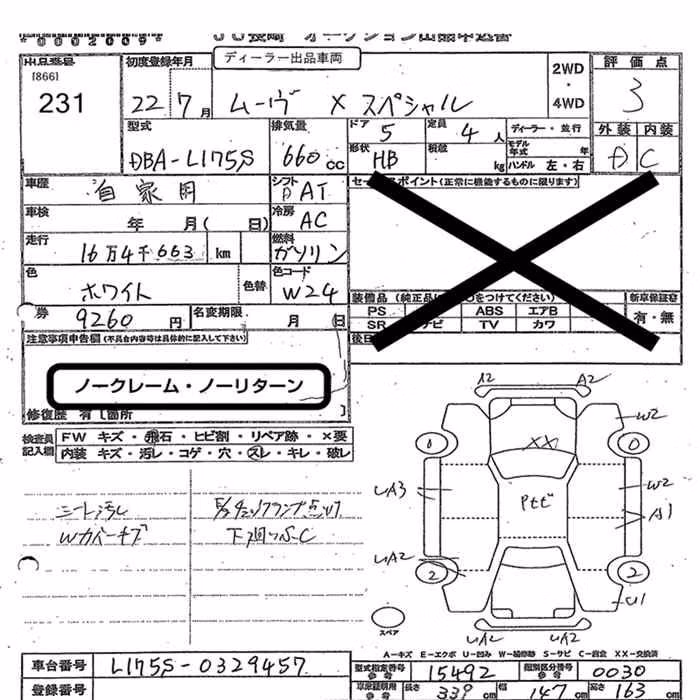 *0002009*
JU長崎 オークション出品申込書
出品番号
[866]
231
初度登録年月
ディーラー出品車両
22年 7月
ムーヴ X スペシャル
2WD
・
4WD
評価点
3
外装 内装
D C
型式
DBA-L175S
排気量
660cc
ドア 5
定員 4人
ディーラー・並行
形状 HB
積載 kg
モデル年式 年
ハンドル 左・右
車歴 自家用
シフト DAT
セールスポイント(正常に機能するものに限ります)
車検 年 月( 日)
冷房 AC
走行 16万4千663 km
燃料 ガソリン
色 ホワイト
色替
色コード W24
装備品 (純正品に○をつけてください)
新車保証書
PS ABS エアB
SR ナビ TV カワ
有・無
券 9260円
名変期限 月 日
後日
注意事項申告欄(不具合内容等は具体的に記入して下さい)
ノークレーム・ノーリターン
修復歴 有 [箇所 ]
検査員記入欄
FW キズ・飛石・ヒビ割・リペア跡・×要
内装 キズ・汚レ・コゲ・穴・スレ・キレ・破レ
シート汚レ
Wカバーキズ
下廻りS.C
A2 A2
W2
XX
0 0
UA3
W2
Pセビ
A1
UA2
2 2
U1
UA2 UA2
スペア
A-キズ E-エクボ U-凹み W-補修跡 S-サビ C-腐食 XX-交換済
車台番号 L175S-0329457
型式指定番号 参考 15492
類別区分番号 参考 0030
登録番号
車庫証明用 参考 長さ 339cm 幅 147cm 高さ 163cm